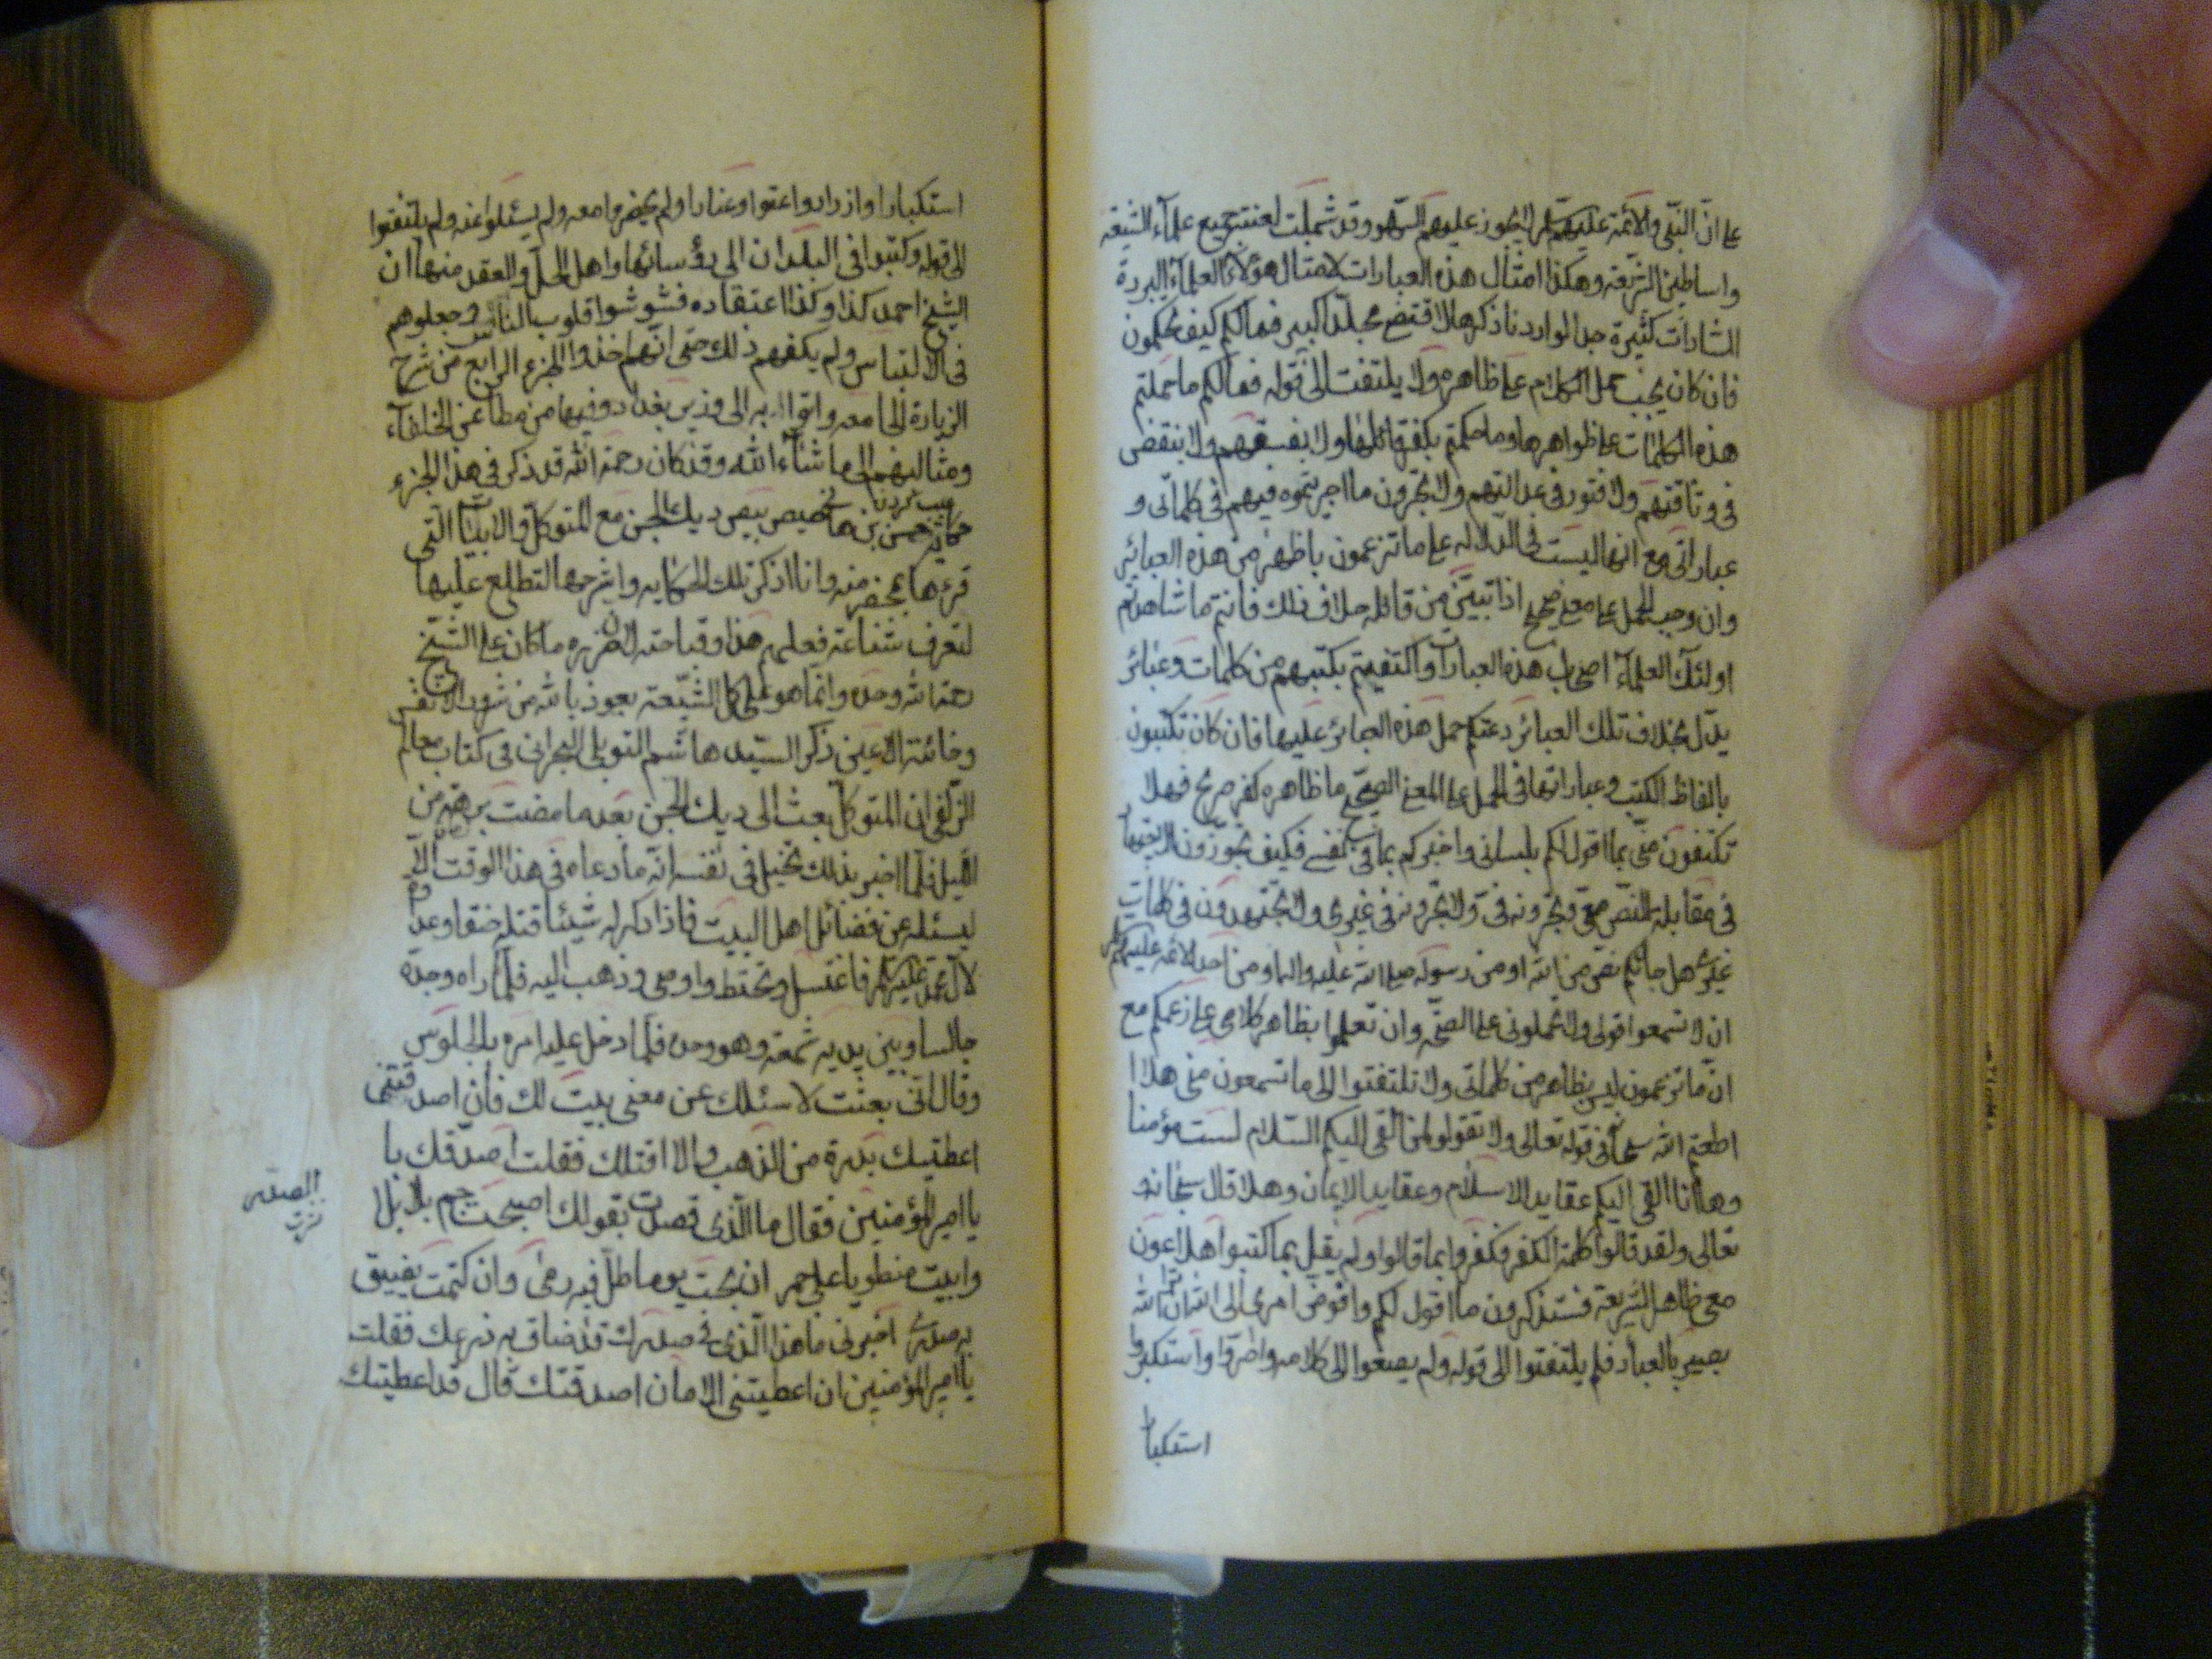 على ان النبي والائمة عليهم السلام لا يجوز عليهم السهو وقد شملت لعنته جميع علماء الشيعة
واساطين الشريعة وهكذا امثال هذه العبارات لامثال هؤلاء العلماء البررة
السادات كثيرة جدا لو اردنا ذكرها لاقتضى مجلدا كبيرا فما لكم كيف تحكمون
فان كان يجب حمل الكلام على ظاهره ولا يلتفت الى قوله فما لكم ما حملتم
هذه الكلمات على ظواهرها وما حكمتم بكفر قائلها ولا بفسقهم ولا بنقض
في وثاقتهم ولا فتور في عدالتهم ولا تجرون ما اجريتموه فيهم في كلماتي و
عباراتي مع انها ليست في الدلالة على ما تزعمون باظهر من هذه العبائر
وان وجب الحمل على معنى صحيح اذا تبين من قائله خلاف ذلك فانتم ما شاهدتم
اولئك العلماء اصحاب هذه العبارات واكتفيتم بكتبهم من كلمات وعبائر
يدل بخلاف تلك العبائر دعتكم حمل هذه العبائر عليها فان كان تكتبون
بالفاظ الكتب وعباراتها في الحمل على المعنى الصحيح ما ظاهره كفر صريح فهلا
تكتفون مني بما اقول لكم بلساني واخبركم بما في نفسي فكيف تجوزون الاجتهاد
في مقابلة النص معي وتجرونه في ولا تجرونه في غيري ولا تجتهدون في كلمات
غيري هل جائكم نص من الله او من رسوله صلى الله عليه واله او من احد الائمة عليهم السلام
ان لا تسمعوا قولي ولا تحملوني على الصحة وان تعملوا بظاهر كلامي على زعمكم مع
ان ما تزعمون ليس بظاهر من كلماتي ولا تلتفتوا الى ما تسمعون مني هلا
اطعتم الله سبحانه في قوله تعالى ولا تقولوا لمن القى اليكم السلام لست مؤمنا
وها انا القي اليكم عقايد الاسلام وعقايد الايمان وهلا قال سبحانه و
تعالى ولقد قالوا كلمة الكفر فكفروا بما قالوا ولم يقبل بما كتبوا هلا
معي ظاهر الشريعة فستذكرون ما اقول لكم وافوض امري الى الله ان الله
بصير بالعباد فلم يلتفتوا الى قوله ولم يصغوا الى كلامه واصروا واستكبروا
استكبارا
استكبارا وازدادوا عتوا وعنادا ولم يحضروا معه ولم يسئلوا عنه ولم يلتفتوا
الى قوله وكتبوا في البلدان الى رؤسائها واهل الحل والعقد منها ان
الشيخ احمد كذا وكذا اعتقاده فشوشوا قلوب الناس وجعلوهم
في الالتباس ولم يكفهم ذلك حتى انهم اخذوا الجزء الرابع من شرح
الزيارة الجامعة واتوا به الى وزير بغداد وفيها من مطاعن الخلفاء
ومثالبهم الى ما شاء الله وقد كان رحمه الله قد ذكر في هذا الجزء
حكاية حسن بن هاني ديك الجن مع المتوكل والابيات التي
قرءها بمحضر منه وانا اذكر تلك الحكاية واشرحها لتطلع عليها
لتعرف شناعة فعلهم هذا وقباحته لان ضرره ما كان على الشيخ
رحمه الله وحده وانما هو على كل الشيعة نعوذ بالله من شرور الانفس
وخائنة الاعين ذكر السيد هاشم التوبلي البحراني في كتاب معالم
الزلفى ان المتوكل بعث الى ديك الجن بعد ما مضت برهة من
الليل فلما اخبر بذلك تخيل في نفسه انه ما دعاه في هذا الوقت الا
ليسئله عن فضائل اهل البيت فاذا ذكر له شيئا قتله
لال محمد عليهم السلام فاغتسل وتحنط واوصى وذهب اليه فلما راه وجده
جالسا وبين يديه شمعة وهو وحده فلما دخل عليه امره بالجلوس
وقال اني بعثت لاسئلك عن معنى بيت لك فان اصدقتني
اعطيتك بدرة من الذهب والا اقتلك فقلت اصدقك يا
يا امير المؤمنين فقال ما الذي قصدت بقولك اصبحت جم بلابل
الصدر
وابيت منطويا على جمر ان بحت يوما طل فيه دمي وان كتمت يضيق
به صدري اخبرني ما هذا الذي في صدرك قد ضاق به ذرعك فقلت
يا امير المؤمنين ان اعطيتني الامان اصدقتك قال قد اعطيتك